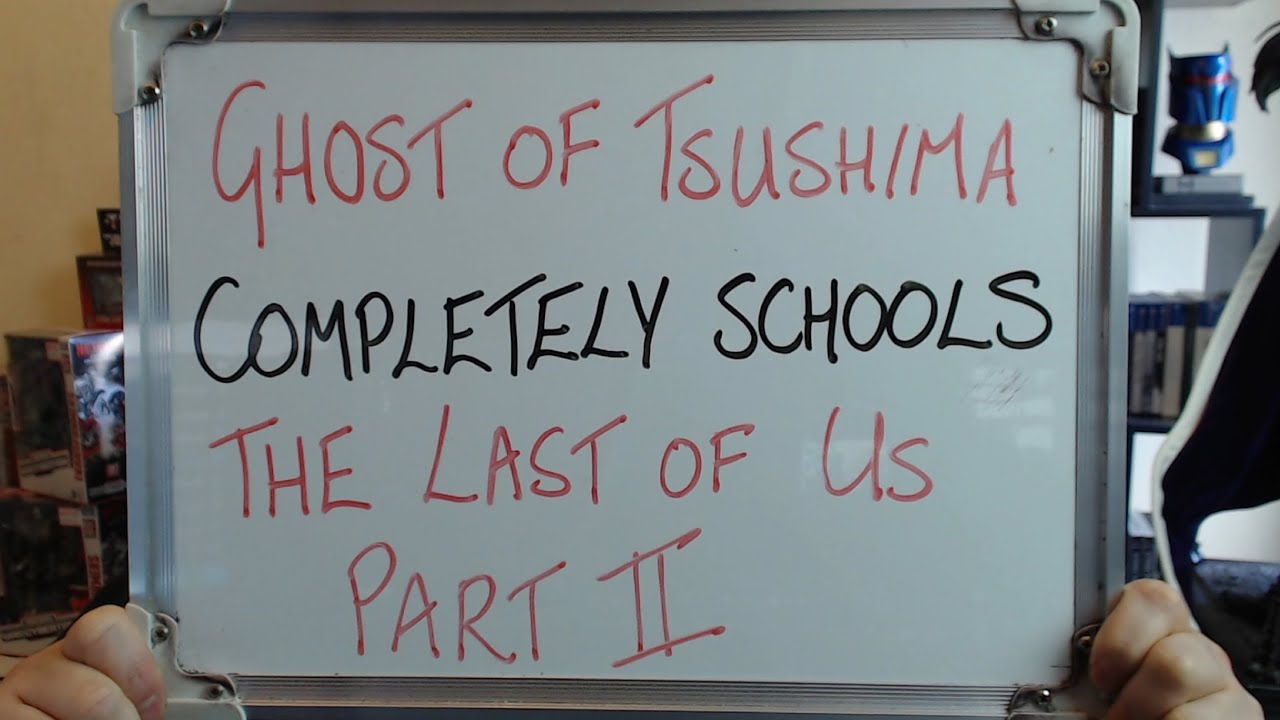 GHOST OF TSUSHIMA
COMPLETELY SCHOOLS
THE LAST OF US
PART II